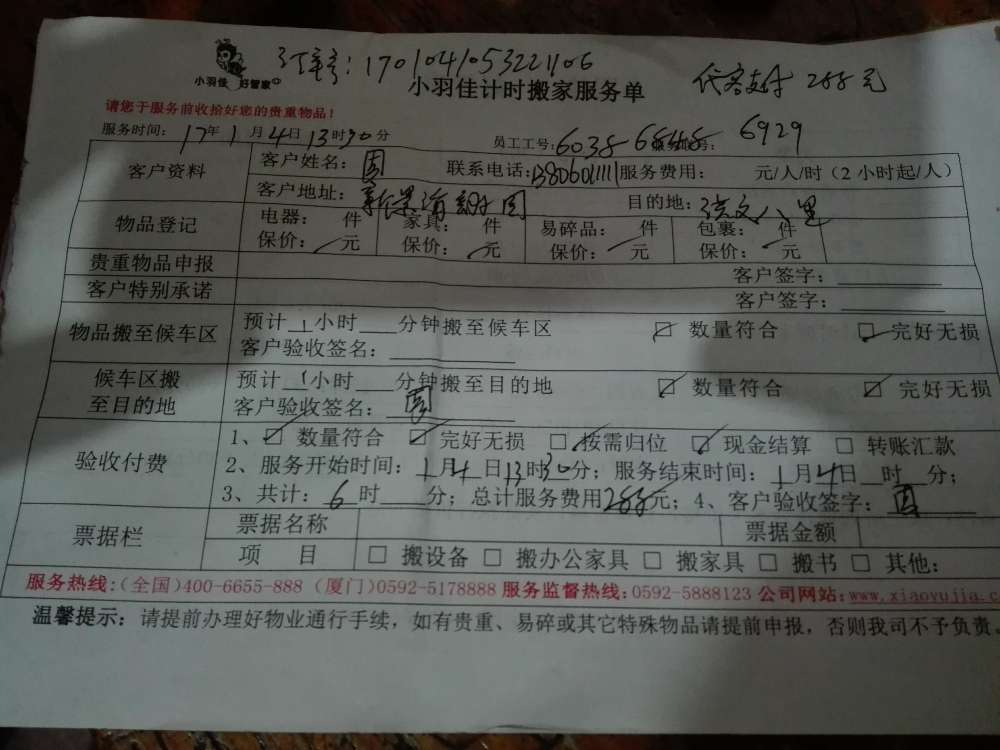 订单号：1701041053221106
代客支付 288元
小羽佳 好管家
小羽佳计时搬家服务单
请您于服务前收拾好您的贵重物品！
服务时间：17年1月4日13时30分 员工工号：6038 6929
客户资料 客户姓名： 联系电话：13806011111 服务费用： 元/人/时（2小时起/人）
客户地址： 目的地：洪文八里
物品登记 电器： 件 家具： 件 易碎品： 件 包裹： 件
保价： 元 保价： 元 保价： 元 保价： 元
贵重物品申报 客户签字：
客户特别承诺 客户签字：
物品搬至候车区 预计1小时 分钟搬至候车区 ☑ 数量符合 ☑ 完好无损
客户验收签名：
候车区搬至目的地 预计1小时 分钟搬至目的地 ☑ 数量符合 ☑ 完好无损
客户验收签名：
验收付费 1、☑ 数量符合 ☑ 完好无损 ☑ 按需归位 ☑ 现金结算 □ 转账汇款
2、服务开始时间：1月4日13时30分；服务结束时间：1月4日 时 分；
3、共计：6时 分；总计服务费用288元；4、客户验收签字：
票据栏 票据名称 票据金额
项 目 □ 搬设备 □ 搬办公家具 □ 搬家具 □ 搬书 □ 其他：
服务热线：（全国）400-6655-888 （厦门）0592-5178888 服务监督热线：0592-5888123 公司网站：www.xiaoyujia.c
温馨提示：请提前办理好物业通行手续，如有贵重、易碎或其它特殊物品请提前申报，否则我司不予负责。